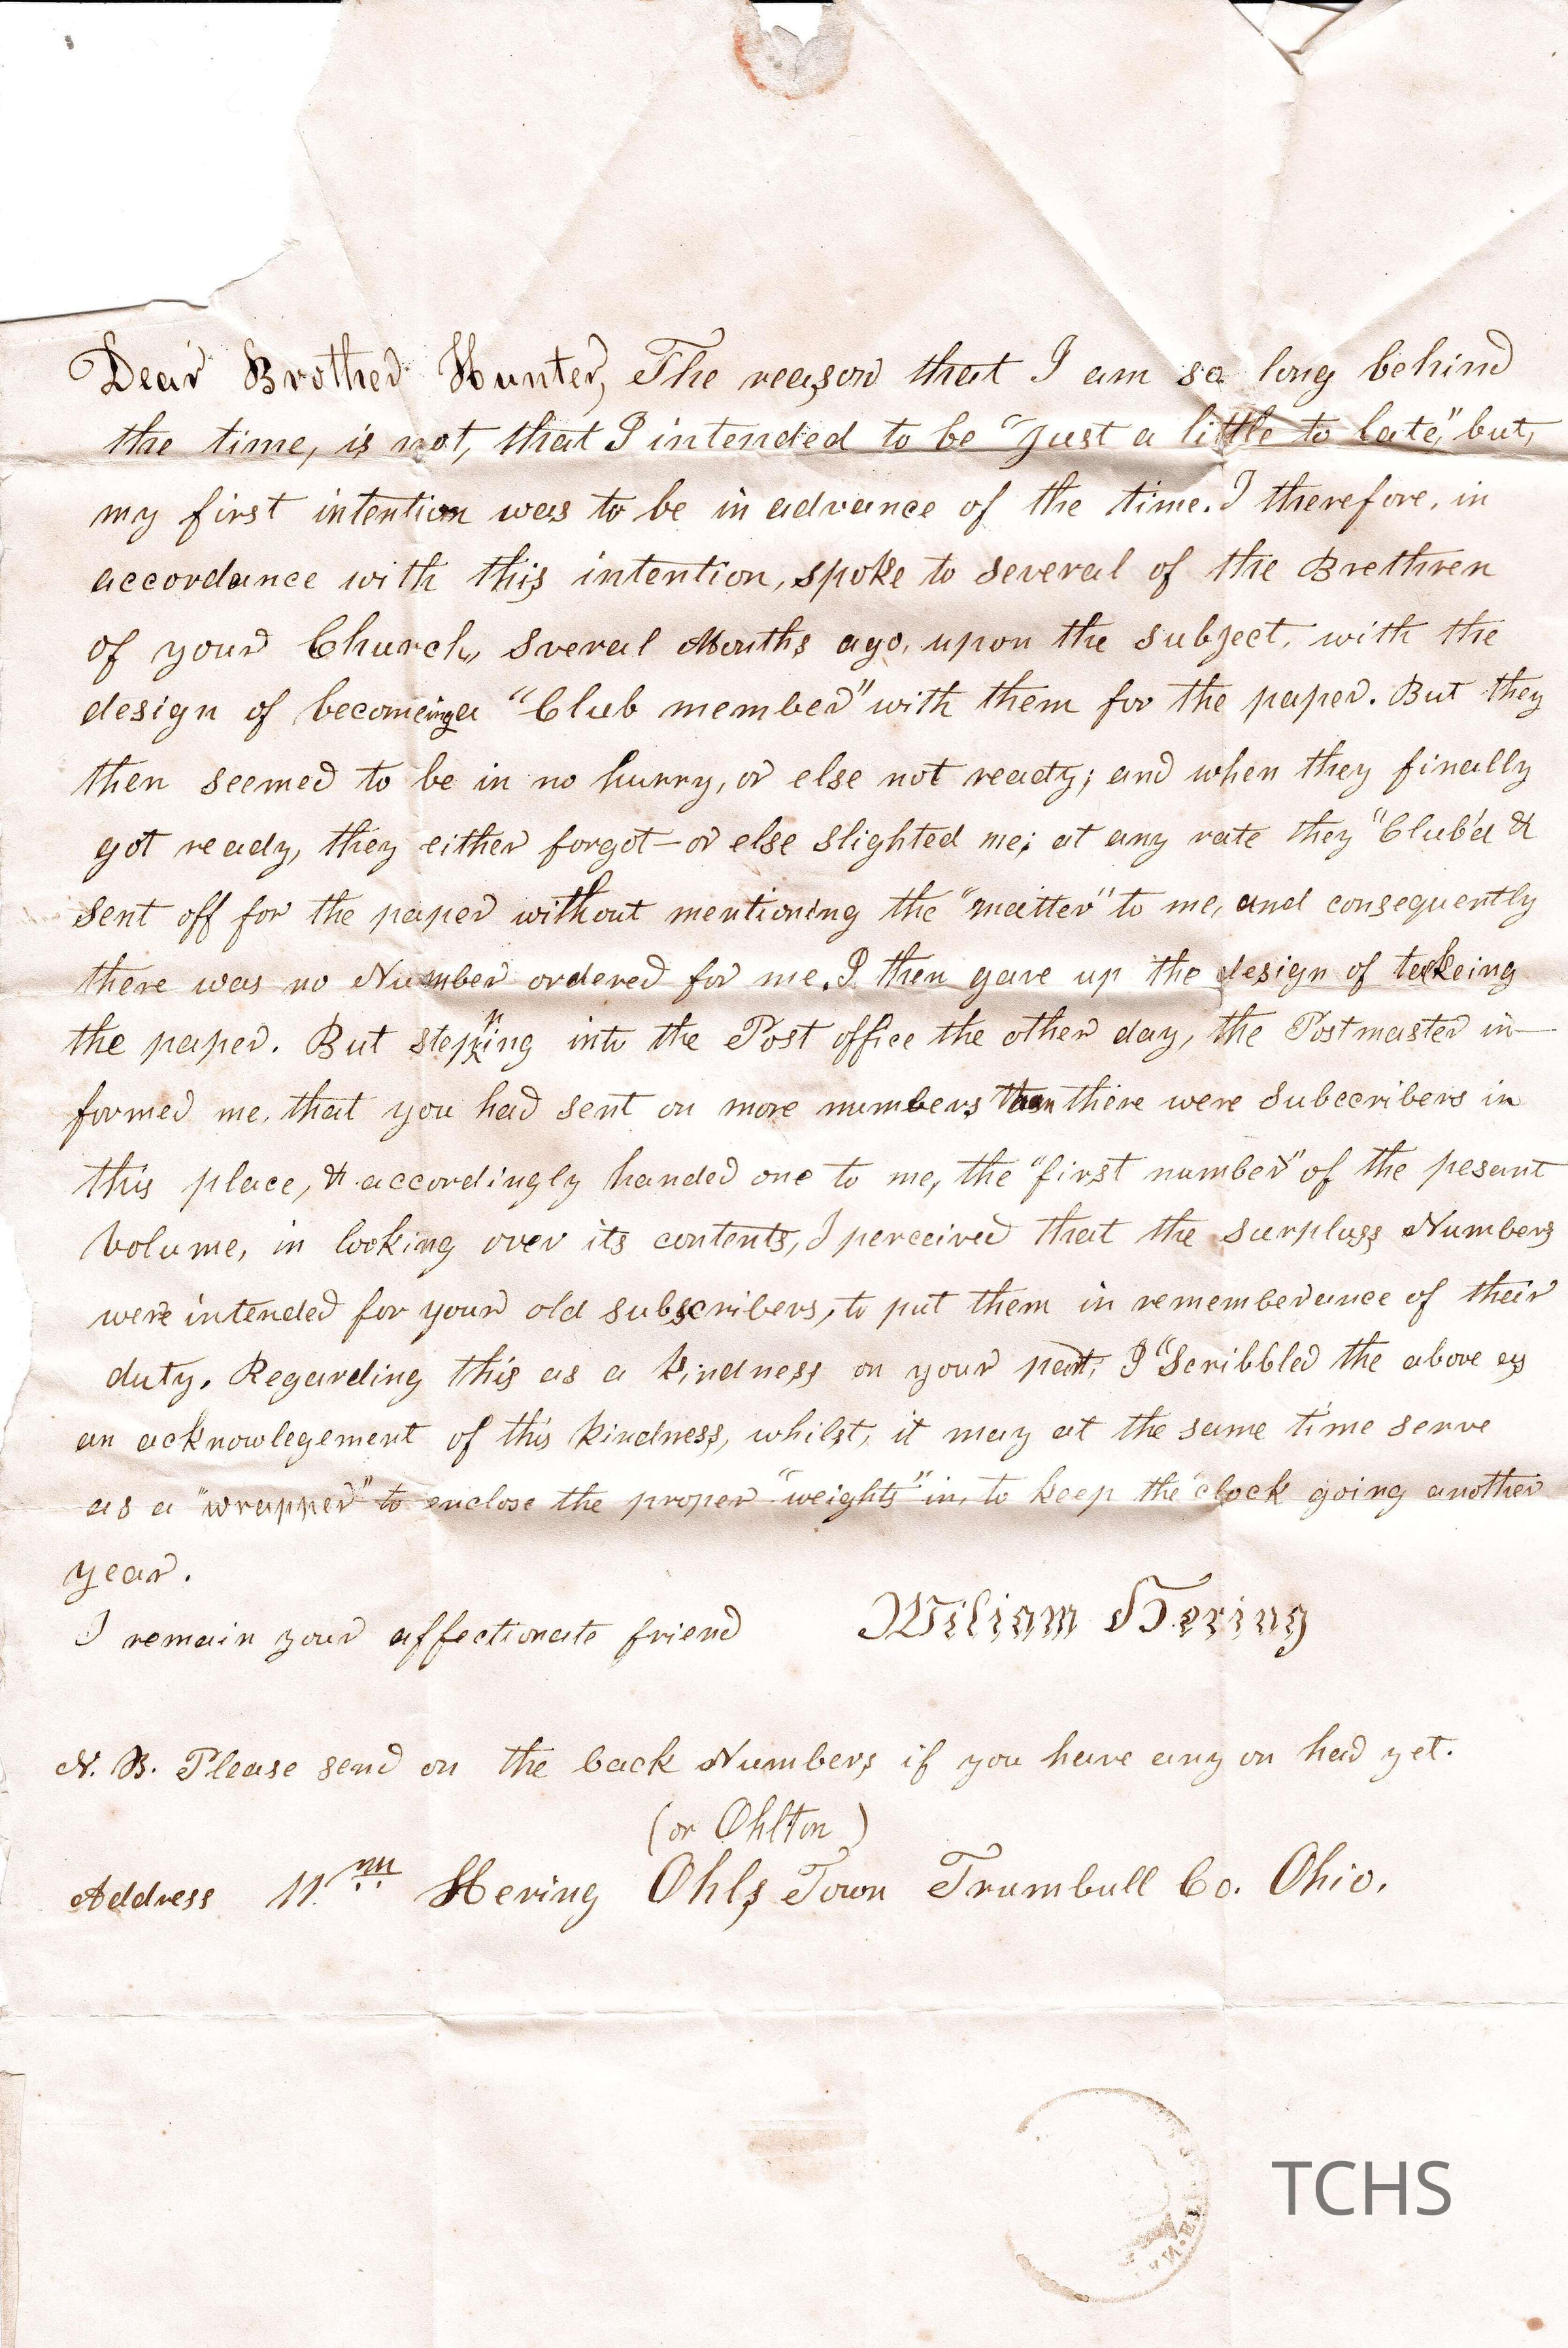 Dear Brother Hunter, The reason that I am so long behind
the time, is not, that I intended to be "Just a little to late," but,
my first intention was to be in advance of the time. I therefore, in
accordance with this intention, spoke to several of the Brethren
of your Church, sveral Months ago, upon the subject, with the
design of becomeing a "Club member" with them for the paper. But they
then seemed to be in no hurry, or else not ready; and when they finally
got ready, they either forgot—or else slighted me; at any rate they "Club'd &
sent off for the paper without mentioning the "matter" to me, and consequently
there was no Number ordered for me. I then gave up the design of takeing
the paper. But stepping into the Post office the other day, the Postmaster in—
formed me, that you had sent on more numbers than there were subccribers in
this place, & accordingly handed one to me, the "first number" of the pesant
Volume, in looking over its contents, I perceived that the surpluss Numbers
were intended for your old subscribers, to put them in rememberance of their
duty. Regarding this as a kindness on your part, I "Scribbled the above as
an acknowlegement of this kindness, whilst, it may at the same time serve
as a "wrapper" to enclose the proper "weights" in, to keep the clock going another
year.
I remain your affectionate friend Wiliam Hering
N. B. Please send on the back Numbers if you have any on had yet.
(or Ohlton)
Address Hering Ohls Town Trumbull Co. Ohio.
TCHS